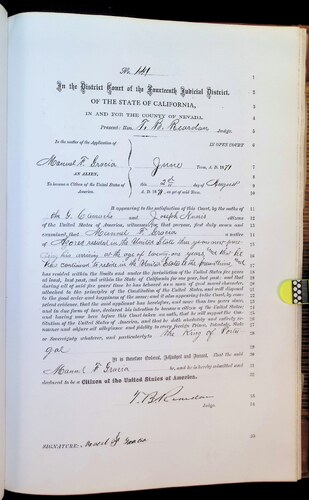 No. 141
In the District Court of the Fourteenth Judicial District.
OF THE STATE OF CALIFORNIA,
IN AND FOR THE COUNTY OF NEVADA.
Present: Hon. T. B. Reardan Judge.
In the matter of the Application of
IN OPEN COURT
Manuel F. Grocia
June Term, A. D. 1871
AN ALIEN,
To become a Citizen of the United States of America.
this 2d day of August
A. D. 1871
It appearing to the satisfaction of this Court, by the oaths of
G. Camacho and Joseph Nunis citizens
of the United States of America, witnesses for that purpose, first duly sworn and
examined, that Manuel F. Grocia a native
of Azores resided in the United States three years next pre-
ceding his arriving at the age of twenty one years, that he
has continued to reside in the United States to the present time
has resided within the limits and under the jurisdiction of the United States five years
at least, last past, and within the State of California for one year, last past; and that
during all of said five years' time he has behaved as a man of good moral character,
attached to the principles of the Constitution of the United States, and well disposed
to the good order and happiness of the same; and it also appearing to the Court, by com-
petent evidence, that the said applicant has heretofore, and more than two years since,
and in due form of law, declared his intention to become a citizen of the United States;
and having now here before this Court taken an oath, that he will support the Con-
stitution of the United States of America, and that he doth absolutely and entirely re-
nounce and abjure all allegiance and fidelity to every foreign Prince, Potentate, State
or Sovereignty whatever, and particularly to the King of Portu
gal
It is therefore Ordered, Adjudged and Decreed, That the said
Manuel F Grocia be, and he is hereby admitted and
declared to be a Citizen of the United States of America.
T. B. Reardan
Judge.
SIGNATURE: